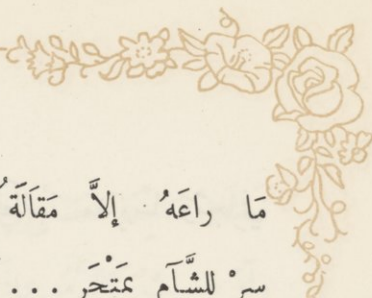 مَا راعَهُ إلاَّ مَقَالَةُ
سِرْ للشَّآمِ بمَتْجَرٍ ...